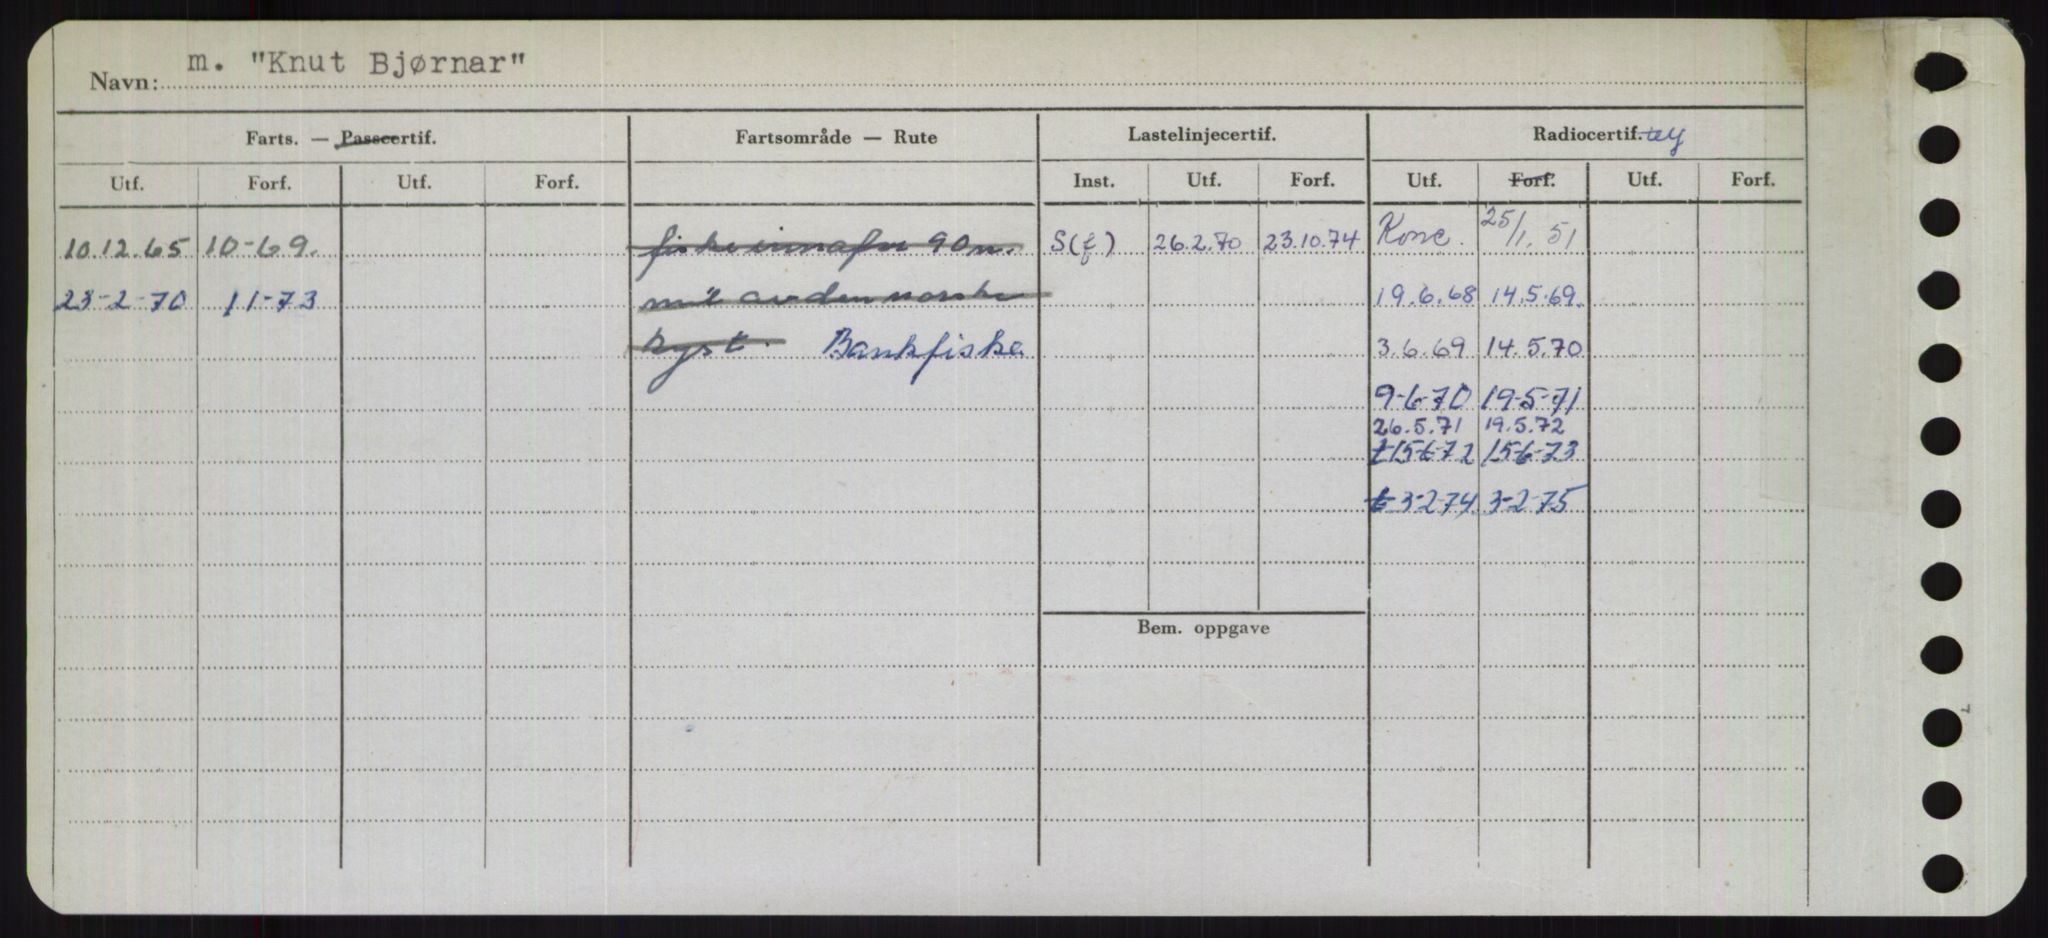 Navn: m. "Knut Bjørnar"
Farts. — Passcertif. Fartsområde — Rute Lastelinjecertif. Radiocertif.
Utf. Forf. Utf. Forf. Inst. Utf. Forf. Utf. Forf. Utf. Forf.
10.12.65 10-69. fiske innafor 90 n. S(f) 26.2.70 23.10.74 Konc. 25/1.51
23-2-70 11-73 mil av den norske 19.6.68 14.5.69.
kyst. Bankfiske 3.6.69 14.5.70
9-6-70 19-5-71
26.5.71 19.5.72
t 15-6-72 15-6-73
t 3-2-74 3-2-75
Bem. oppgave
7